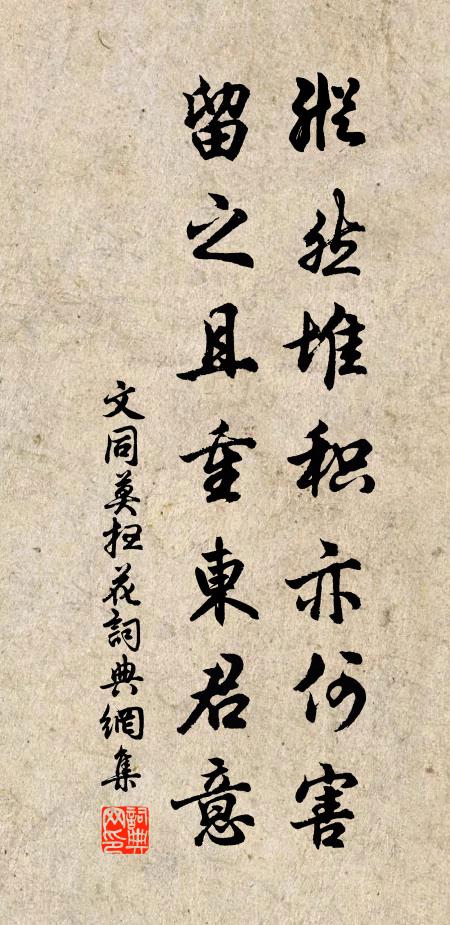 縱然堆积亦何害
留之且重東君意
文同莫扫花詞典網集
詞典网印